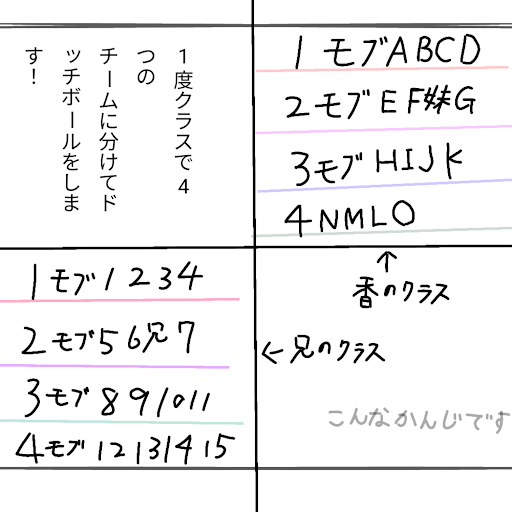 1度クラスで4
つの
チームに分けてド
ッチボールをしま
す!
1 モブABCD
2 モブEF妹G
3 モブHIJK
4 NMLO
↑
香のクラス
1 モブ1234
2 モブ56兄7
3 モブ891011
4 モブ12131415
←兄のクラス
こんなかんじです